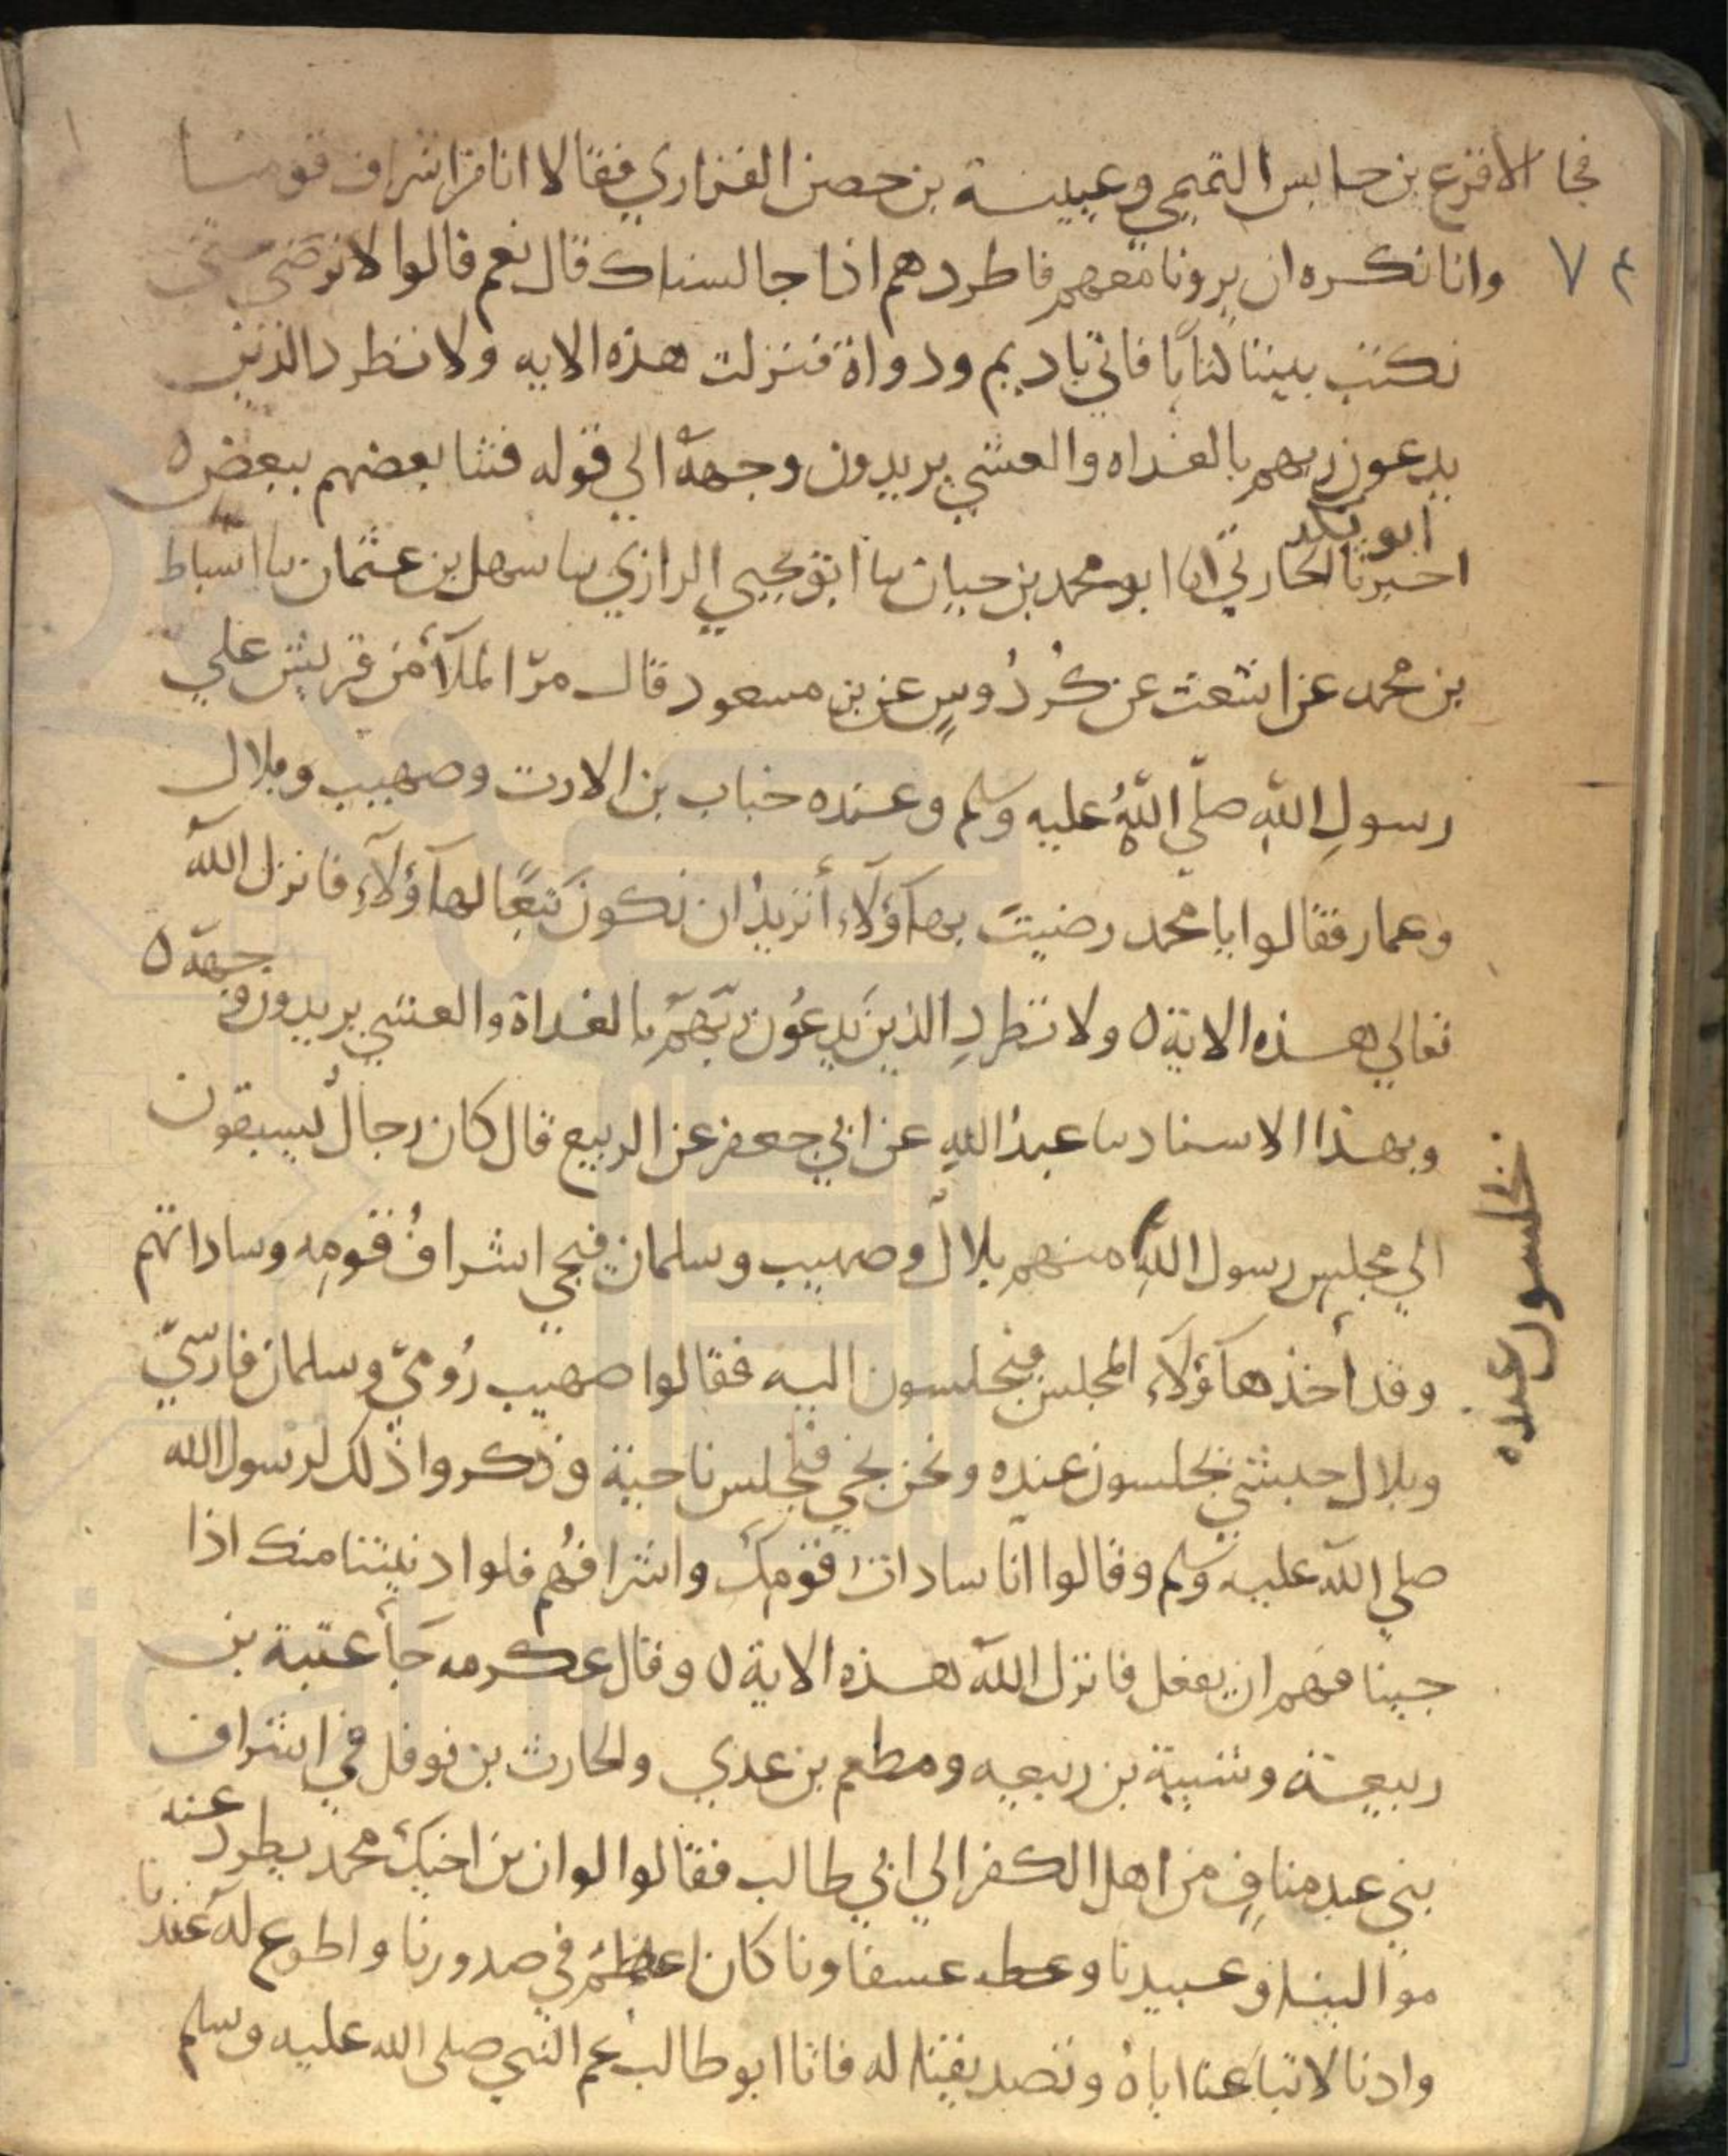 فجا الاقرع بن حابس التميمي وعيينة بن حصن الفزاري فقالا انا من اشراف قومنا
وانا نكره ان يرونا معهم فاطردهم اذا جالسناك قال نعم قالوا لا نرضي حتي
٧٤
نكتب بيننا كتابا فاتي باديم ودواة فنزلت هذه الايه ولا تطرد الذين
يدعون ربهم بالغداه والعشي يريدون وجهه الي قوله فتنا بعضهم ببعض ه
ابو بكر
اخبرنا الحارثي انا ابو محمد بن حيان نا ابو يحيي الرازي نا سهل بن عثمان نا اسباط
بن محمد عن اشعث عن كُردُوسٍ عن بن مسعود قال مرّ الملآ من قريش علي
رسولِ اللهِ صلّي اللهُ عليه وسلم وعنده خباب بن الارت وصهيب وبلال
وعمار فقالوا يا محمد رضيت بهآؤلآء أتريدُ ان نكون تبعًا لهآؤلآء فانزل الله
تعالي هذه الاية ه ولا تطردِ الذين يدعُون ربّهم بالغداة والعشي يريدون وجهه ه
وبهذا الاسناد نا عبدُ اللهِ عن ابي جعفر عن الربيع قال كان رجالٌ يسبقون
الي مجلس رسول اللهِ منهم بلالٌ وصهيب وسلمان فيجي اشرافُ قومِه وساداتهم
وقد أخذ هآؤلآء المجلس فيجلسون اليه فقالوا صهيب رُوميّ وسلمان فارسيّ
وبلال حبشي يجلسون عنده ونحن نجي فنجلس ناحية وذكروا ذلك لرسول الله
يجلسون عنده
صلي الله عليه وسلم وقالوا انا سادات قومك واشرافُهم فلو ادنيتنا منك اذا
جينا فهم ان يفعل فانزل الله هذه الاية ه وقال عكرمه جآ عتبة بن
ربيعة وشيبة بن ربيعه ومطعم بن عدي والحارث بن نوفل في اشراف
بني عبد منافٍ من اهل الكفر الي ابي طالب فقالوا لو ان بن اخيك محمد يطرد عنه
موالينا وعبيدنا وعسفاونا كان اعظم في صدورنا واطوع له عندنا
وادنا لاتباعنا اياهُ وتصديقنا له فاتا ابو طالب عم النبي صلى الله عليه وسلم